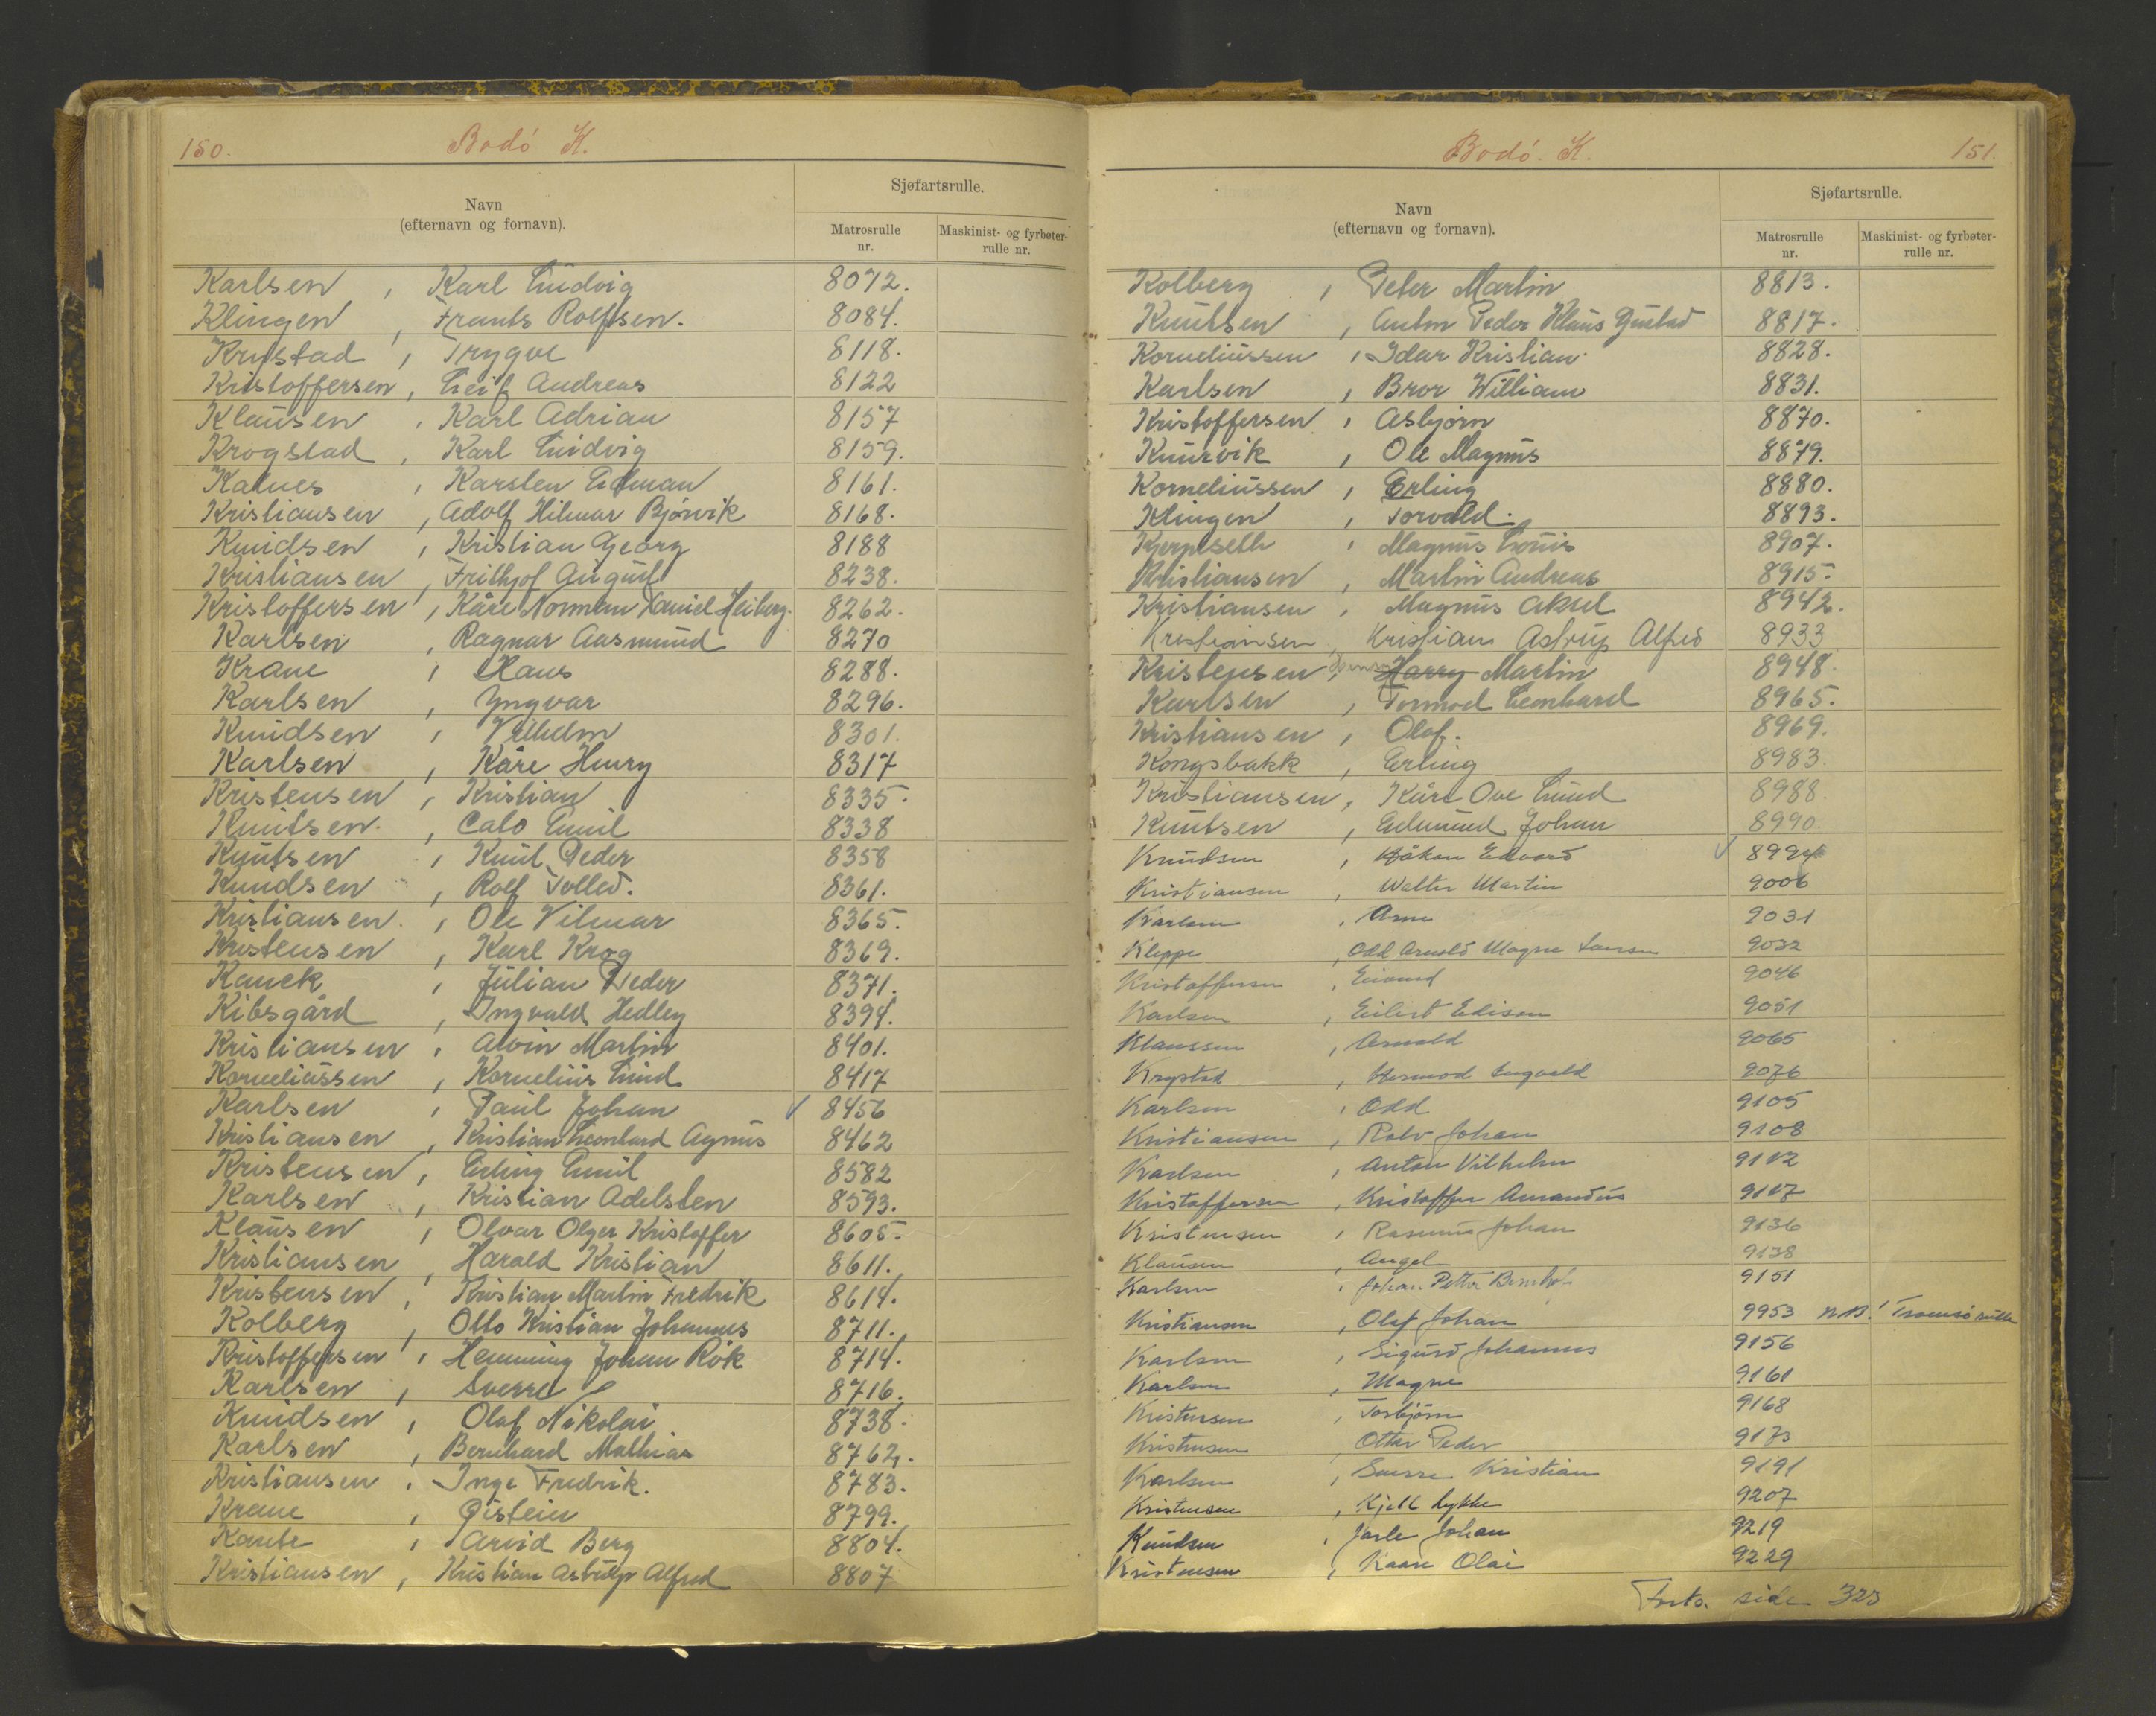 150.
Bodó K.
Navn
(efternavn og fornavn).
Sjøfartsrulle.
Matrosrulle nr.
Maskinist- og fyrbøter-rulle nr.
Karlsen, Karl Ludvig 8072.
Klingen, Frants Rolfsen. 8084.
Krystad, Trygve 8118.
Kristoffersen, Leif Andreas 8122
Klausen, Karl Adrian 8157
Krogstad, Karl Ludvig 8159.
Kalnes, Karsten Edman 8161.
Kristiansen, Adolf Hilmar Bjørvik 8168.
Knudsen, Kristian Georg 8188
Kristiansen, Frithjof August 8238.
Kristoffersen, Kåre Norman Daniel Heiberg. 8262.
Karlsen, Ragnar Aasmund 8270
Krane, Hans 8288.
Karlsen, Yngvar 8296.
Knudsen, Vilhelm 8301.
Karlsen, Kåre Henry 8317
Kristensen, Kristian 8335.
Knutsen, Calo Emil 8338
Knutsen, Knut Peder 8358
Knudsen, Rolf Tollef. 8361.
Kristiansen, Ole Vilmar 8365.
Kristensen, Karl Krog 8369.
Kanck, Julian Peder 8371.
Kibsgård, Ingvald Hedley 8394.
Kristiansen, Alvin Martin 8401.
Korneliussen, Kornelius Lund 8417
Karlsen, Paul Johan ✓ 8456
Kristiansen, Kristian Leonhard Agnus 8462
Kristensen, Erling Emil 8582
Karlsen, Kristian Adelsten 8593.
Klausen, Olvar Olger Kristoffer 8605.
Kristiansen, Harald Kristian 8611.
Kristensen, Kristian Martin Fredrik 8614.
Kolberg, Otto Kristian Johannes 8711.
Kristoffersen, Hemming Johan Rök 8714.
Karlsen, Sverre 8716.
Knudsen, Olaf Nikolai 8738.
Karlsen, Bernhard Mathias 8762.
Kristiansen, Inge Fredrik. 8783.
Krane, Øistein 8799.
Kante, Arvid Berg 8804.
Kristiansen, Kristian Astrup Alfred 8807
Bodó. K.
151.
Navn
(efternavn og fornavn).
Sjøfartsrulle.
Matrosrulle nr.
Maskinist- og fyrbøter-rulle nr.
Kolberg, Peter Martin 8813.
Knutsen, Anton Peder Klaus Gustad 8817.
Korneliussen, Idar Kristian. 8828.
Karlsen, Bror William 8831.
Kristoffersen, Asbjørn 8870.
Knurvik, Ole Magnus 8879.
Korneliussen, Erling 8880.
Klingen, Torvald. 8893.
Kjerpseth, Magnus Louis 8907.
Kristiansen, Martin Andreas 8915.
Kristiansen, Magnus Aksel 8942.
Kristiansen, Kristian Astrup Alfred 8933
Kristensen, Harry Martin 8948.
Karlsen, Tormod Leonhard 8965.
Kristiansen, Olaf. 8969.
Kongsbakk, Erling 8983.
Kristiansen, Kåre Ove Lund 8988.
Knutsen, Edmund Johan 8990.
Knudsen, Håkon Edvard ✓ 8994
Kristiansen, Walter Martin 9006
Karlsen, Arne 9031
Kleppe, Odd Arnold Magne Larsen 9032
Kristoffersen, Eivind 9046
Karlsen, Eilert Edison 9051
Klaussen, Arnold 9065
Krystad, Hermod Ingvald 9076
Karlsen, Odd 9105
Kristiansen, Rolv Johan 9108
Karlsen, Anton Vilhelm 9112
Kristoffersen, Kristoffer Amandus 9117
Kristensen, Rasmus Johan 9136
Klausen, Angel 9138
Karlsen, Johan Petter 9151
Kristiansen, Olaf Johan 9953 N.B.! Tromsö rulle
Karlsen, Sigurd Johannes 9156
Karlsen, Magne 9161
Kristensen, Torbjørn 9168
Kristensen, Ottar Peder 9173
Karlsen, Sverre Kristian 9191
Kristensen, Kjell Lykke 9207
Knudsen, Jarle Johan 9219
Kristensen, Kaare Olai 9229
Forts. side 323